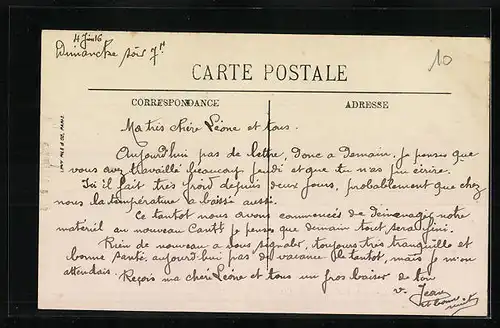 4 Juin 16
Dimanche soir 7h
10
CARTE POSTALE
CORRESPONDANCE
ADRESSE
LEVY FILS & CO, PARIS.
Ma très chère Léone et tous.
Aujourd'hui pas de lettre, donc a Demain. Je penses que
vous avez travaillé beaucoup jeudi et que tu n'as pu écrire.
Ici il fait très froid depuis deux jours, probablement que chez
nous la température a baissé aussi.
Ce tantot nous avons commencés de déménager notre
matériel au nouveau Cantt je penses que demain tout sera fini.
Rien de nouveau a vous signaler, toujours très tranquille et
bonne santé, aujourd'hui pas de vacance le tantot, mais je m'en
attendais. Reçois ma chère Léone et tous un gros baiser de ton
v. Jean
et bonne
nuit